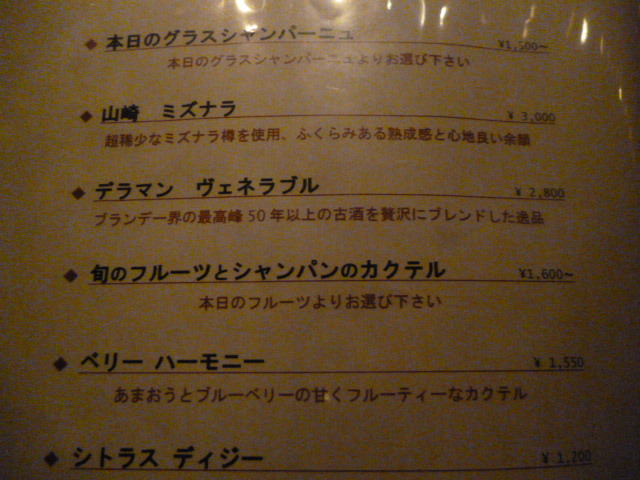 ◆ 本日のグラスシャンパーニュ ¥1,500~
本日のグラスシャンパーニュよりお選び下さい
◆ 山崎 ミズナラ ¥ 3,000
超稀少なミズナラ樽を使用、ふくらみある熟成感と心地良い余韻
◆ デラマン ヴェネラブル ¥ 2,800
ブランデー界の最高峰 50 年以上の古酒を贅沢にブレンドした逸品
◆ 旬のフルーツとシャンパンのカクテル ¥1,600~
本日のフルーツよりお選び下さい
◆ ベリー ハーモニー ¥ 1,550
あまおうとブルーベリーの甘くフルーティーなカクテル
◆ シトラス ディジー ¥ 1,200